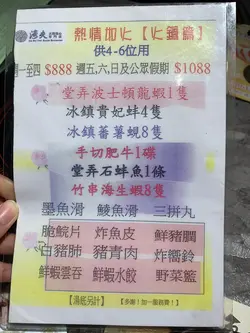 熱情加火【火鍋篇】
供4-6位用
週一至四 $888 週五,六,日及公眾假期 $1088
堂弄波士頓龍蝦1隻
冰鎮貴妃蚌4隻
冰鎮蕃薯蜆8隻
手切肥牛1碟
堂弄石蚌魚1條
竹串海生蝦8隻
墨魚滑 鯪魚滑 三拼丸
脆鯇片 炸魚皮 鮮豬膶
白豬肺 豬青肉 炸響鈴
鮮蝦雲吞 鮮蝦水餃 野菜籃
【湯底另計】 【多謝!加一服務費!】